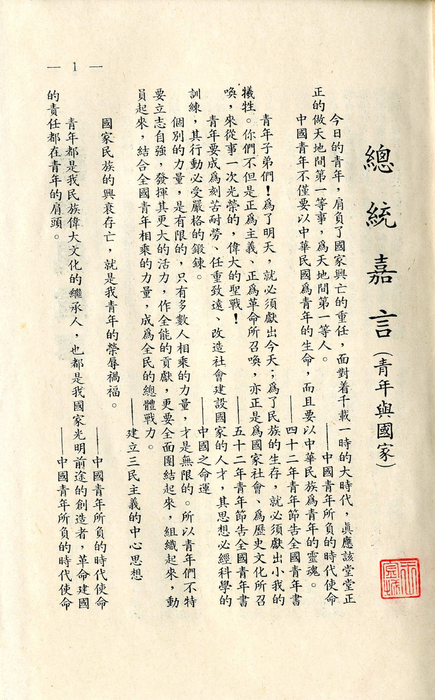 總統嘉言（青年與國家）
今日的青年，肩負了國家興亡的重任，面對着千載一時的大時代，眞應該堂堂正
正的做天地間第一等事，爲天地間第一等人。
——中國青年所負的時代使命
中國青年不僅要以中華民國爲青年的生命，而且要以中華民族爲青年的靈魂。
——四十二年青年節告全國青年書
青年子弟們！爲了明天，就必須獻出今天；爲了民族的生存，就必須獻出小我的
犧牲。你們不但是正爲主義、正爲革命所召喚，亦正是爲國家社會、爲歷史文化所召
喚，來從事一次光榮的，偉大的聖戰！
——五十二年青年節告全國青年書
青年要成爲刻苦耐勞、任重致遠、改造社會建設國家的人才，其思想必經科學的
訓練，其行動必受嚴格的鍛鍊。
——中國之命運
個別的力量，是有限的，只有多數人相乘的力量，才是無限的。所以青年們不特
要立志自強，發揮其更大的活力，作全能的貢獻，更要全面團結起來，組織起來，動
員起來，結合全國青年相乘的力量，成爲全民的總體戰力。
——建立三民主義的中心思想
國家民族的興衰存亡，就是我青年的榮辱禍福。
——中國青年所負的時代使命
青年都是我民族偉大文化的繼承人，也都是我國家光明前途的創造者，革命建國
的責任都在青年的肩頭。
——中國青年所負的時代使命
— 1 —